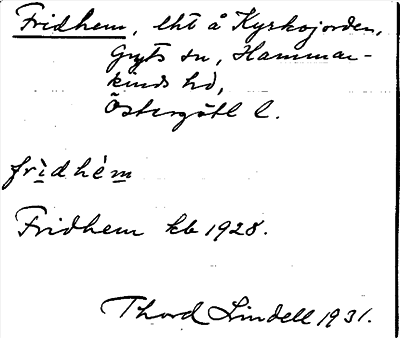 Fridhem, lht å Kyrkojorden,
Gryts sn, Hammar-
kinds hd,
Östergötl l.
frìdhém
Fridhem kb 1928.
Thord Lindell 1931.